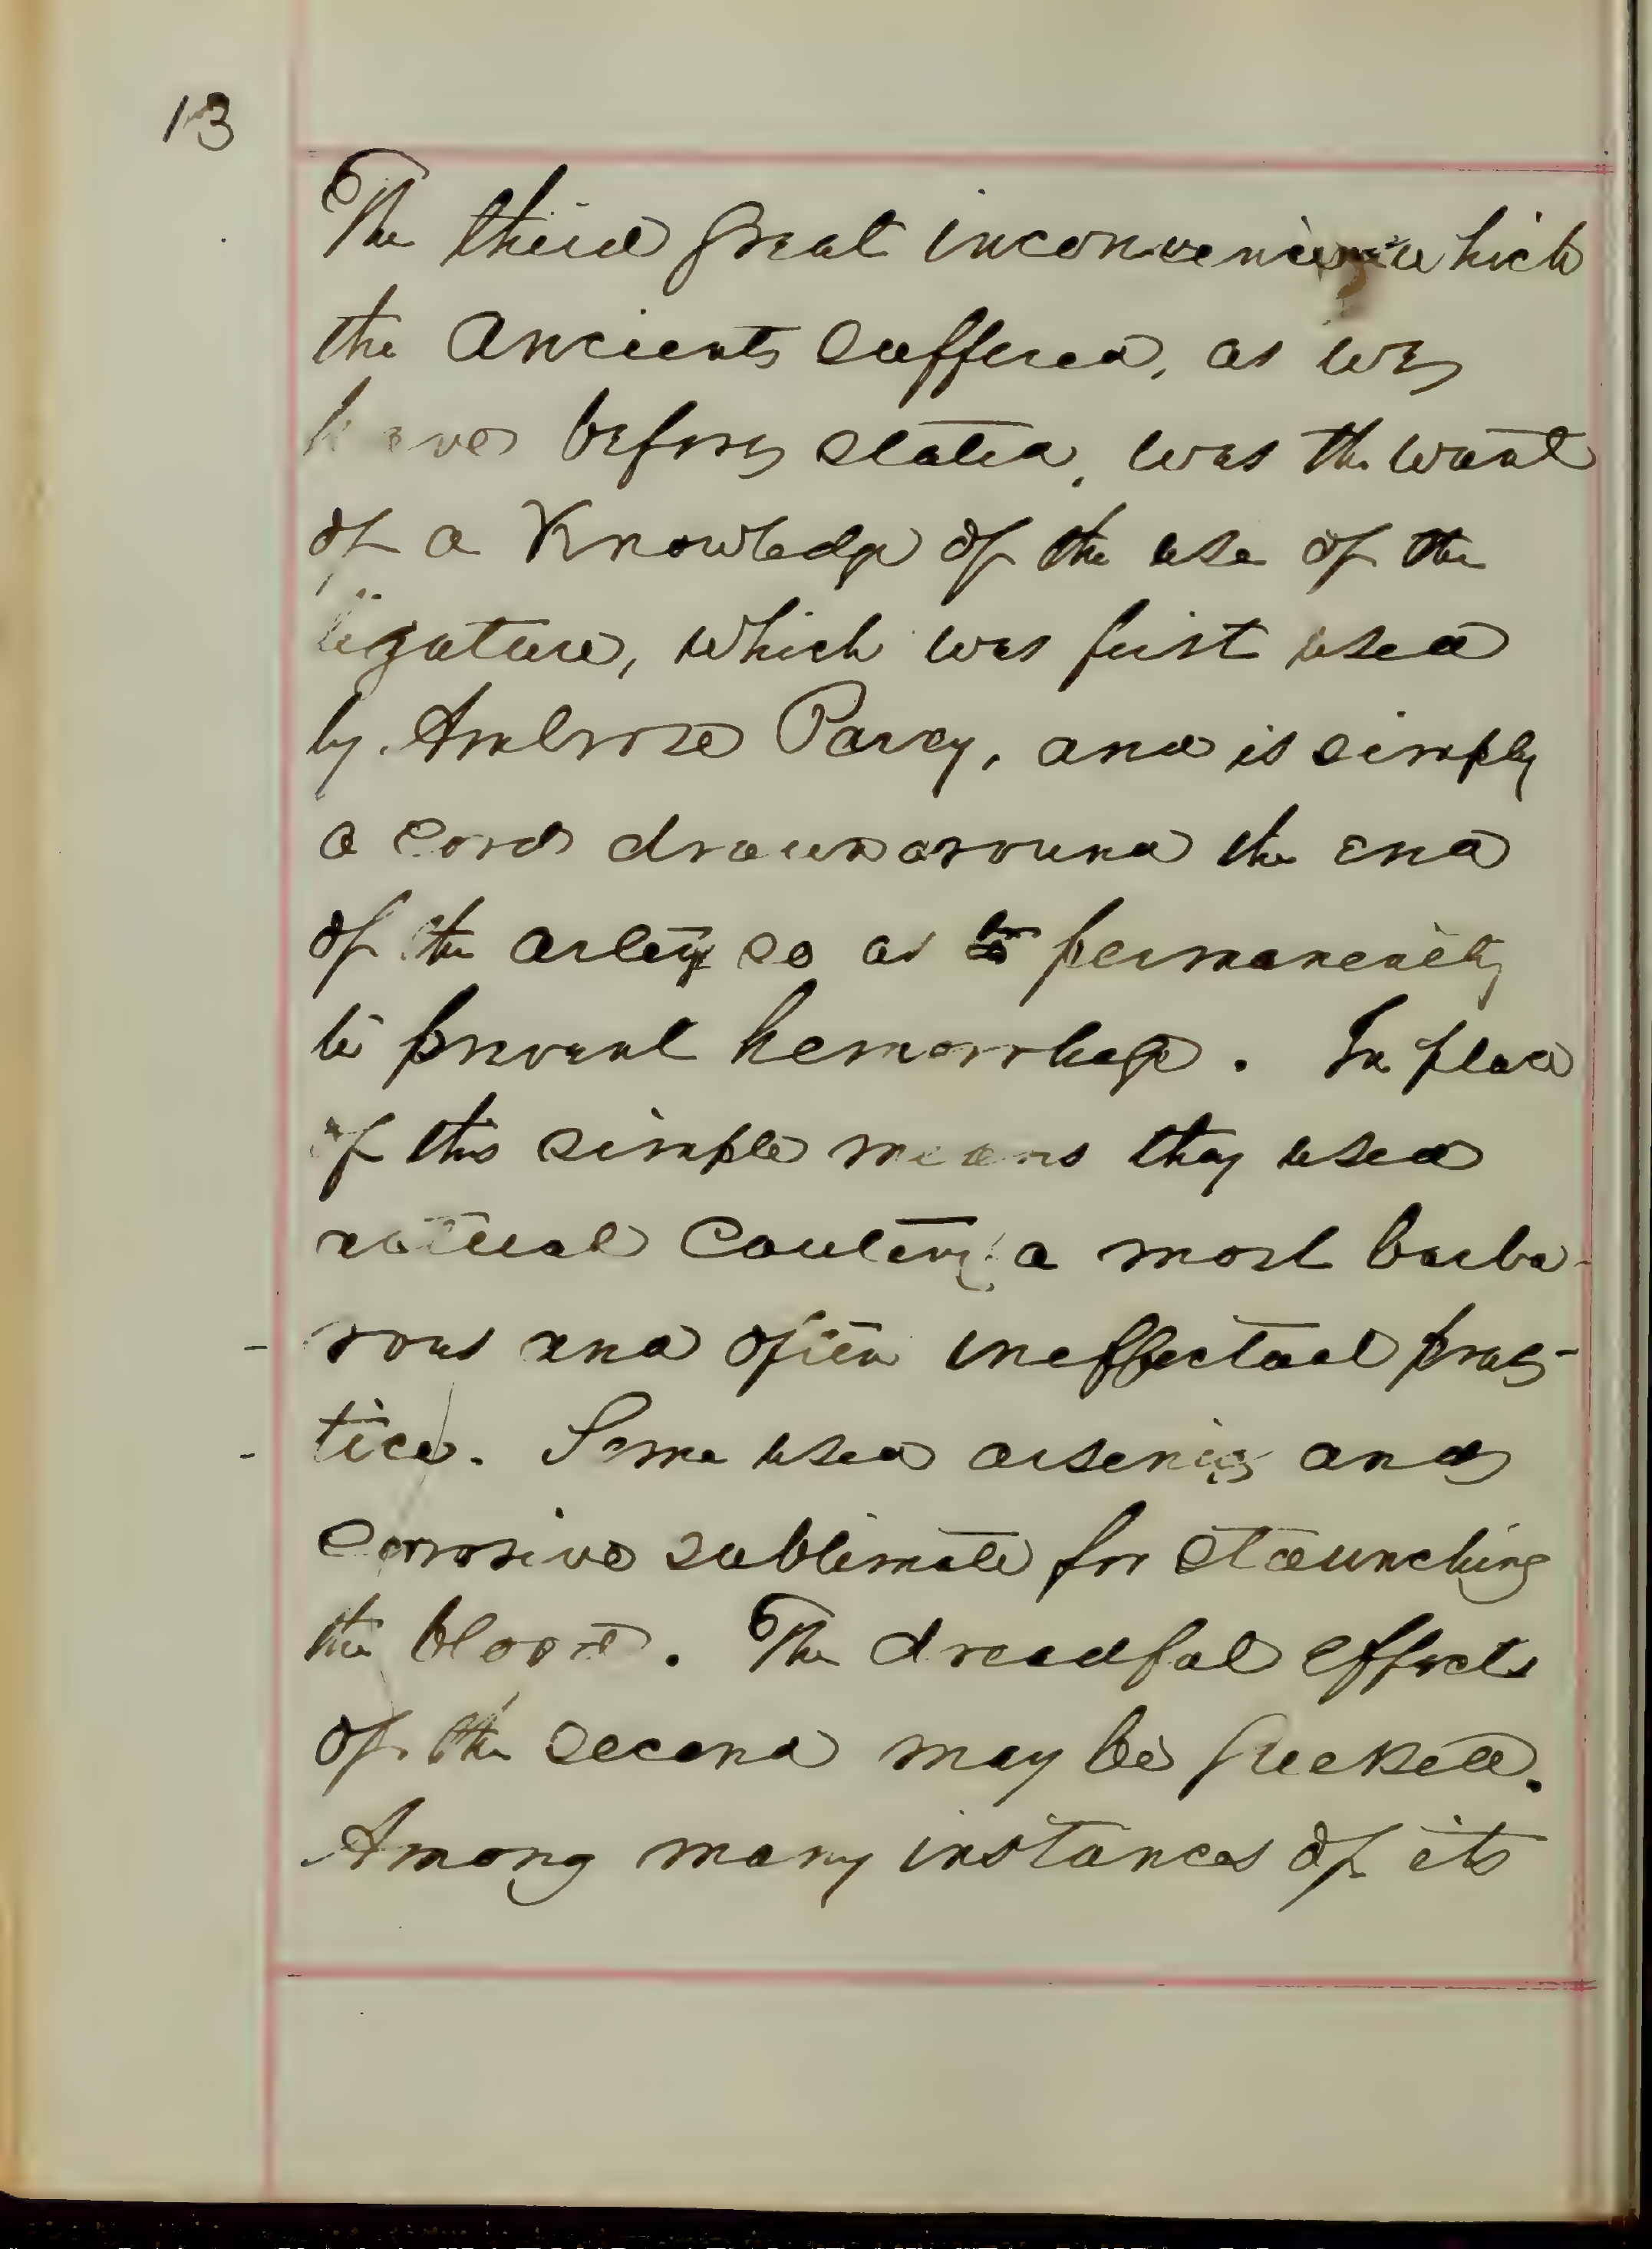 13
The third great inconvenience which
the Ancients suffered, as we
have before stated, was the want
of a Knowledge of the use of the
ligature, which was first used
by Ambrose Parey, and is simply
a cord drawn around the end
of the artery so as to permanently
to prevent hemorrhage. In place
of this simple means they used
actual Cautery, a most barba-
rous and often ineffectual prac-
tice. Some used arsenic and
Corrosive sublimate for staunching
the blood. The dreadful effects
of the second may be guessed.
Among many instances of its